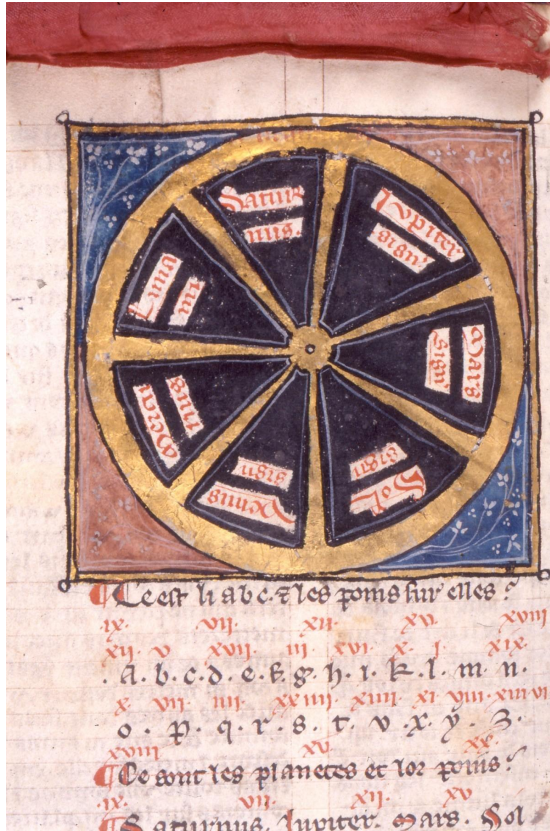 Satur
nus.
Jupiter
sign'
Mars
sign'
Sol
sign
Venus
sign
Mercu
rius
Luna
¶ Ce est li a b c. ⁊ les poins sur elles?
ix. vii. xii. xv. xviii
xii. v xvii. iii xvi. x. i. xix.
. A. b. c. d. e. f. g. h. i. k. l. m. n.
x. vii. iiii. xxiiii. xiiii. xi viii. xiii vi
o. p. q. r. s. t. v. x. y. z.
xviii xv xx
¶ Ce sont les planetes et lor poins?
ix. vii. xii. xv
¶ Saturnus. Jupiter. Mars. Sol